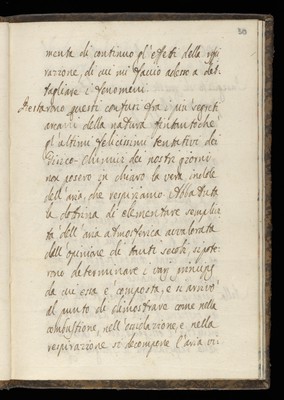 mente di continuo gl'effeti della respi
razione, di cui mi faccio adesso a det
tagliare i fenomeni.
Restarono questi confusi fra i più segreti
arcani della natura fintantoche
gl'ultimi felicissimi tentativi dei
Fisico-Chimici dei nostri giorni
non posero in chiaro la vera indole
dell'aria, che respiriamo. Abbattuta
la dottrina di elementare semplici
tà dell'aria atmosferica avvalorata
dell'opinione di tanti secoli, si pote
rono determinare i varj principj
da cui essa è composta, e si arrivò
al punto di dimostrare come nella
combustione, nell'ossidazione, e nella
respirazione si decompone l'aria vi